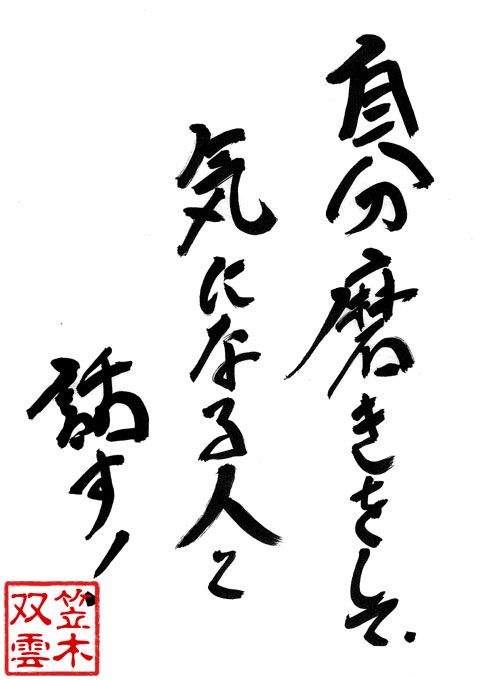 自分磨きをして、
気になる人と
話す!
笠木
双雲